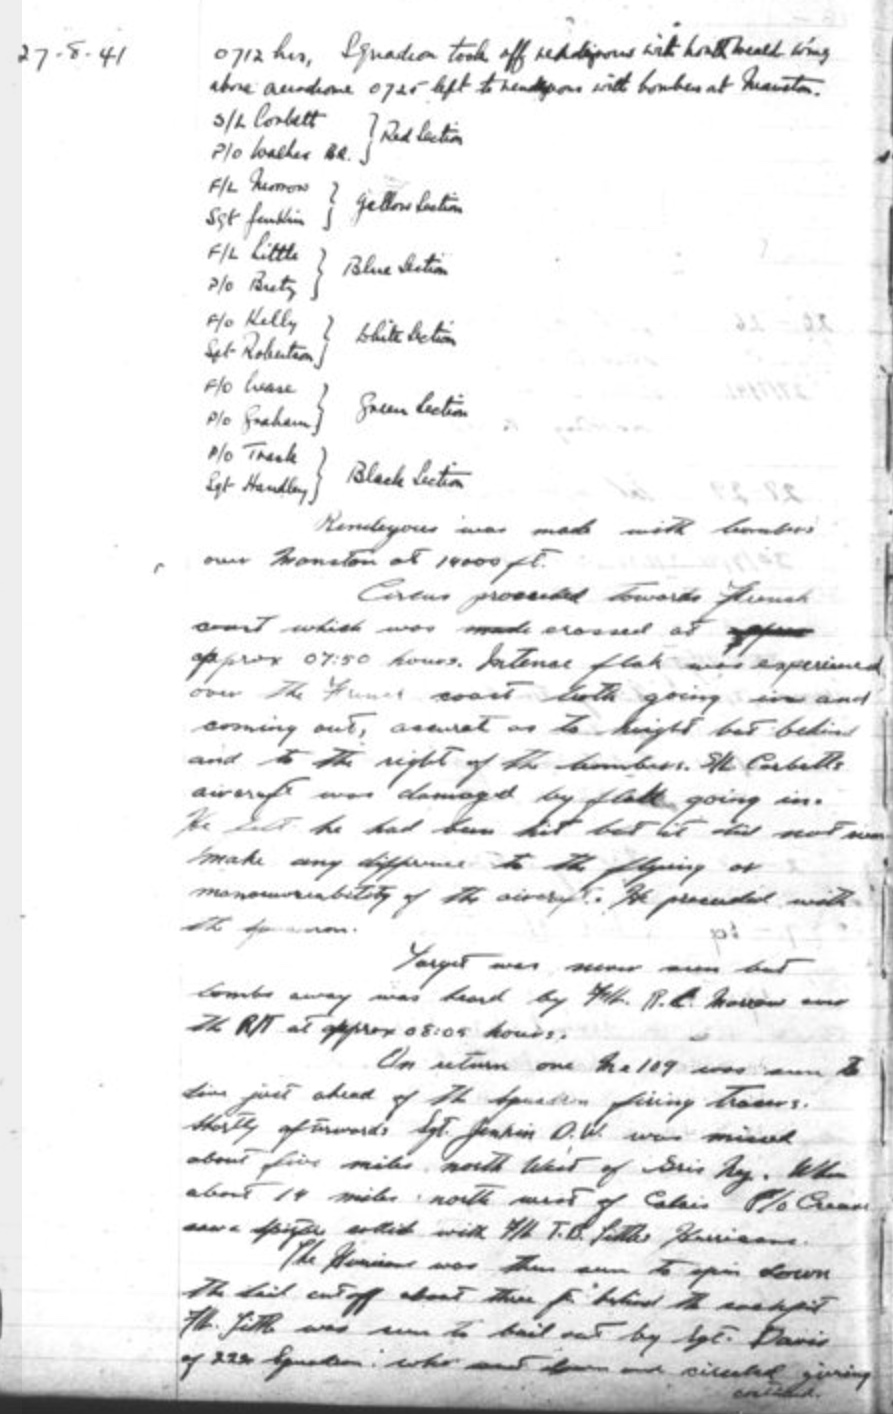 27-8-41
0712 hrs, Squadron took off rendezvous with North Weald wing
above aerodrome 0725 left to rendezvous with bombers at Manston.
S/L Corbett
P/O Walker BR. } Red Section
F/L Morrow
Sgt Jenkin } Yellow Section
F/L Little
P/O } Blue Section
F/O Kelly
Sgt Robertson } White Section
F/O Crease
P/O Graham } Green Section
P/O Trask
Sgt Handley } Black Section
Rendezvous was made with bombers
over Manston at 14000 ft.
Circus proceeded towards French
coast which was made crossed at
approx 07:50 hours. Intense flak was experienced
over the coast both going in and
coming out, accurat as to height but behind
and to the right of the bombers. S/L Corbetts
aircraft was damaged by flak going in.
He felt he had been hit but it did not
make any difference to the flying or
manoeuvreability of the aircraft. He proceeded with
the squadron.
Target was never seen but
bombs away was heard by F/Lt. R. E. Morrow over
the R/T at approx 08:05 hours.
On return one Me 109 was seen to
dive just ahead of the squadron firing tracers.
Shortly afterwards Sgt. Jenkin D.W. was missed
about five miles north West of Gris Nez. When
about 14 miles north west of Calais P/o Crease
saw a collid with F/Lt T.B. Littles Hurricane.
The Hurricane was then seen to spin down
the tail cut off about three ft behind the cockpit
F/Lt. Little was seen to bail out by Sgt. Davis
of 222 Squadron who went down and circled giving